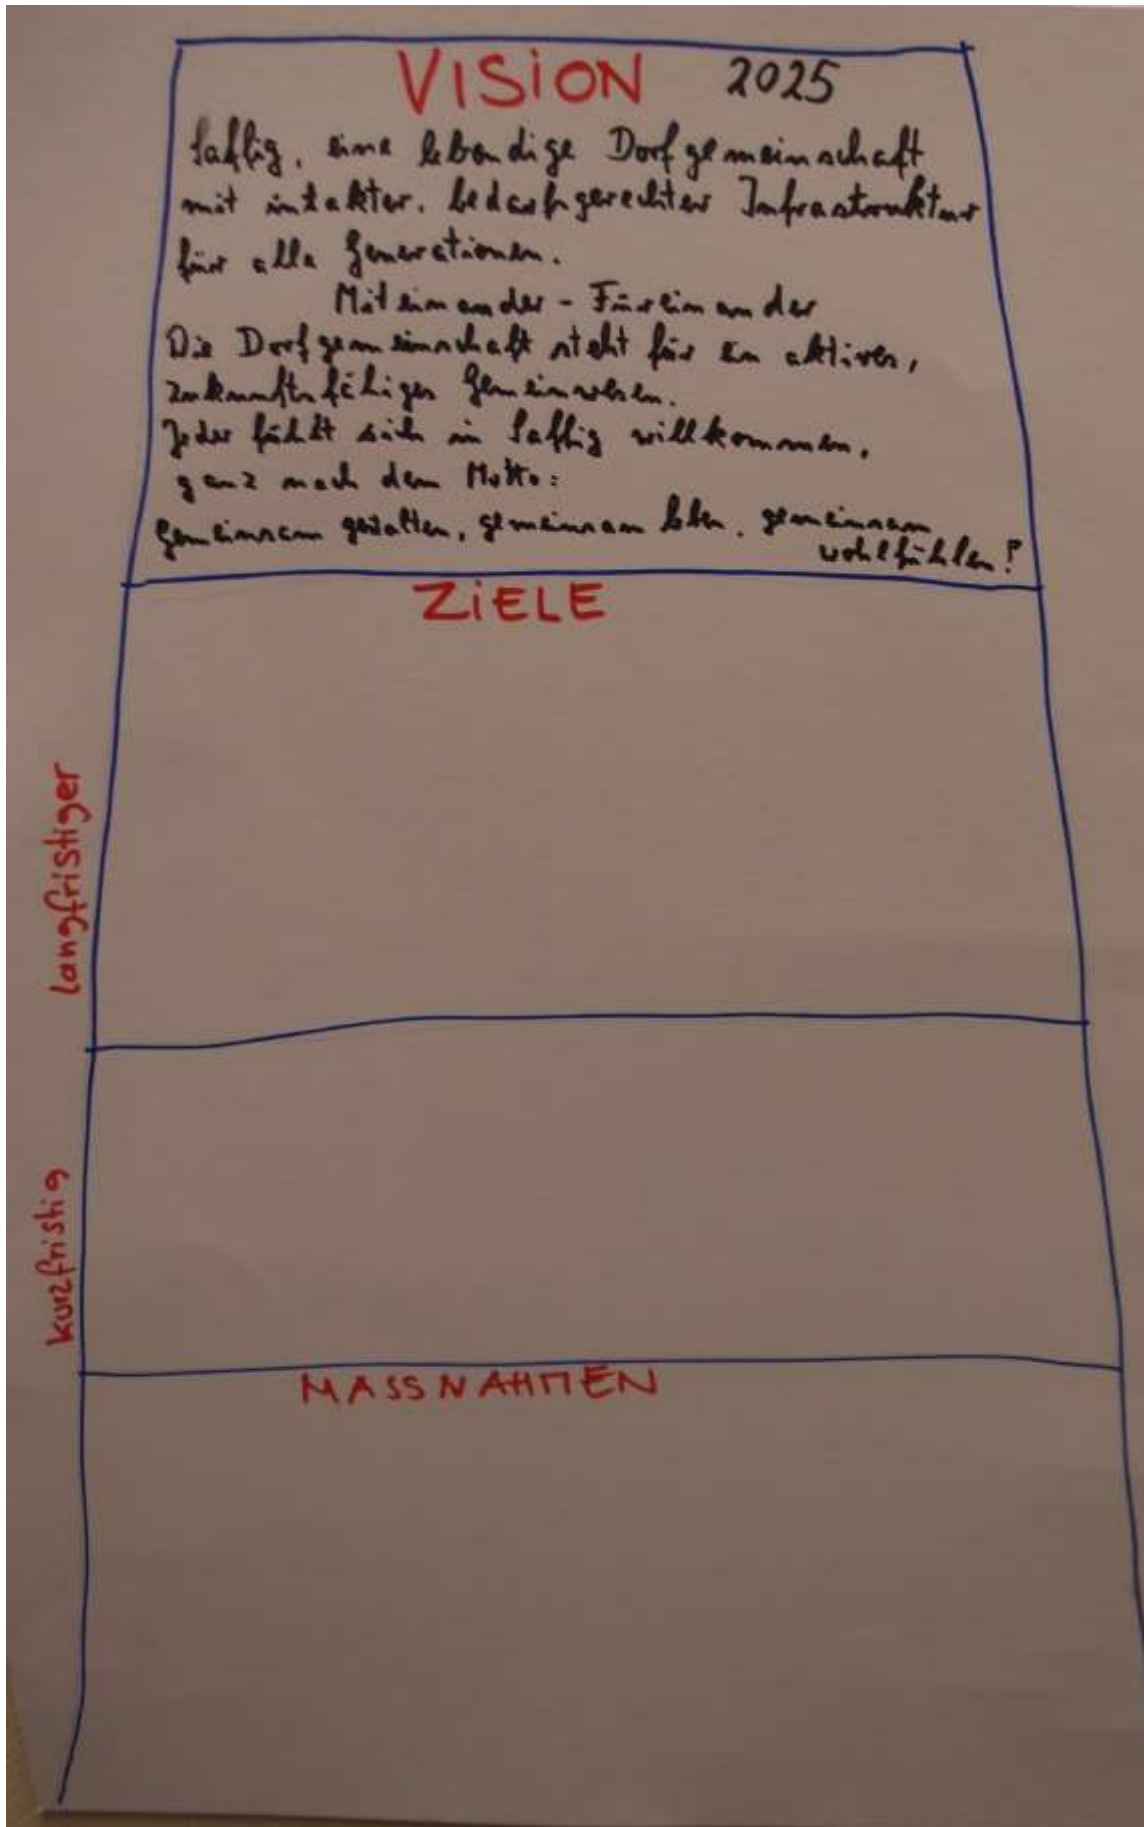 VISION 2025
Saffig, eine lebendige Dorfgemeinschaft
mit intakter, bedarfsgerechter Infrastruktur
für alle Generationen.
Miteinander - Füreinander
Die Dorfgemeinschaft steht für ein aktives,
zukunftsfähiges Gemeinwesen.
Jeder fühlt sich in Saffig willkommen,
ganz nach dem Motto:
Gemeinsam gestalten, gemeinsam leben, gemeinsam
wohlfühlen!
ZIELE
langfristiger
kurzfristig
MASSNAHMEN